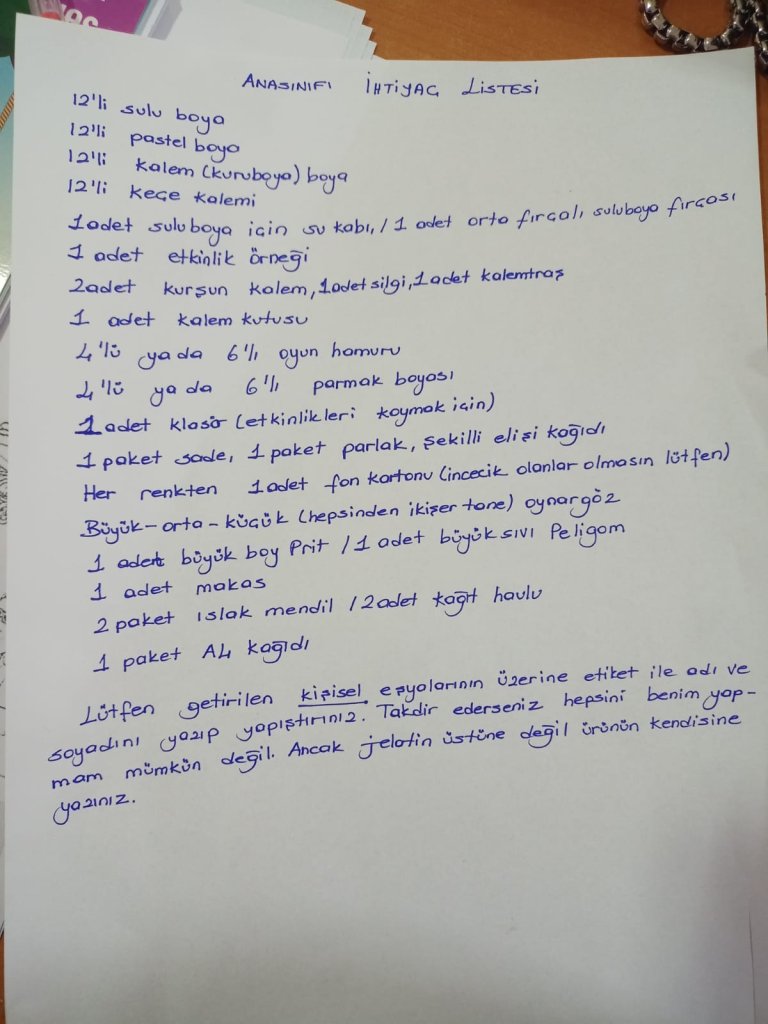 ANASINIFI İHTİYAÇ LİSTESİ
12'li sulu boya
12'li pastel boya
12'li kalem (kuruboya) boya
12'li keçe kalemi
1 adet suluboya için su kabı, / 1 adet orta fırçalı suluboya fırçası
1 adet etkinlik örneği
2 adet kurşun kalem, 1 adet silgi, 1 adet kalemtraş
1 adet kalem kutusu
4'lü ya da 6'lı oyun hamuru
4'lü ya da 6'lı parmak boyası
1 adet klasör (etkinlikleri koymak için)
1 paket sade, 1 paket parlak, şekilli elişi kağıdı
Her renkten 1 adet fon kartonu (incecik olanlar olmasın lütfen)
Büyük - orta - küçük (hepsinden ikişer tane) oynargöz
1 adet büyük boy Prit / 1 adet büyük sıvı Peligom
1 adet makas
2 paket ıslak mendil / 2 adet kağıt havlu
1 paket A4 kağıdı
Lütfen getirilen kişisel eşyalarının üzerine etiket ile adı ve
soyadını yazıp yapıştırınız. Takdir ederseniz hepsini benim yap-
mam mümkün değil. Ancak jelatin üstüne değil ürünün kendisine
yazınız.